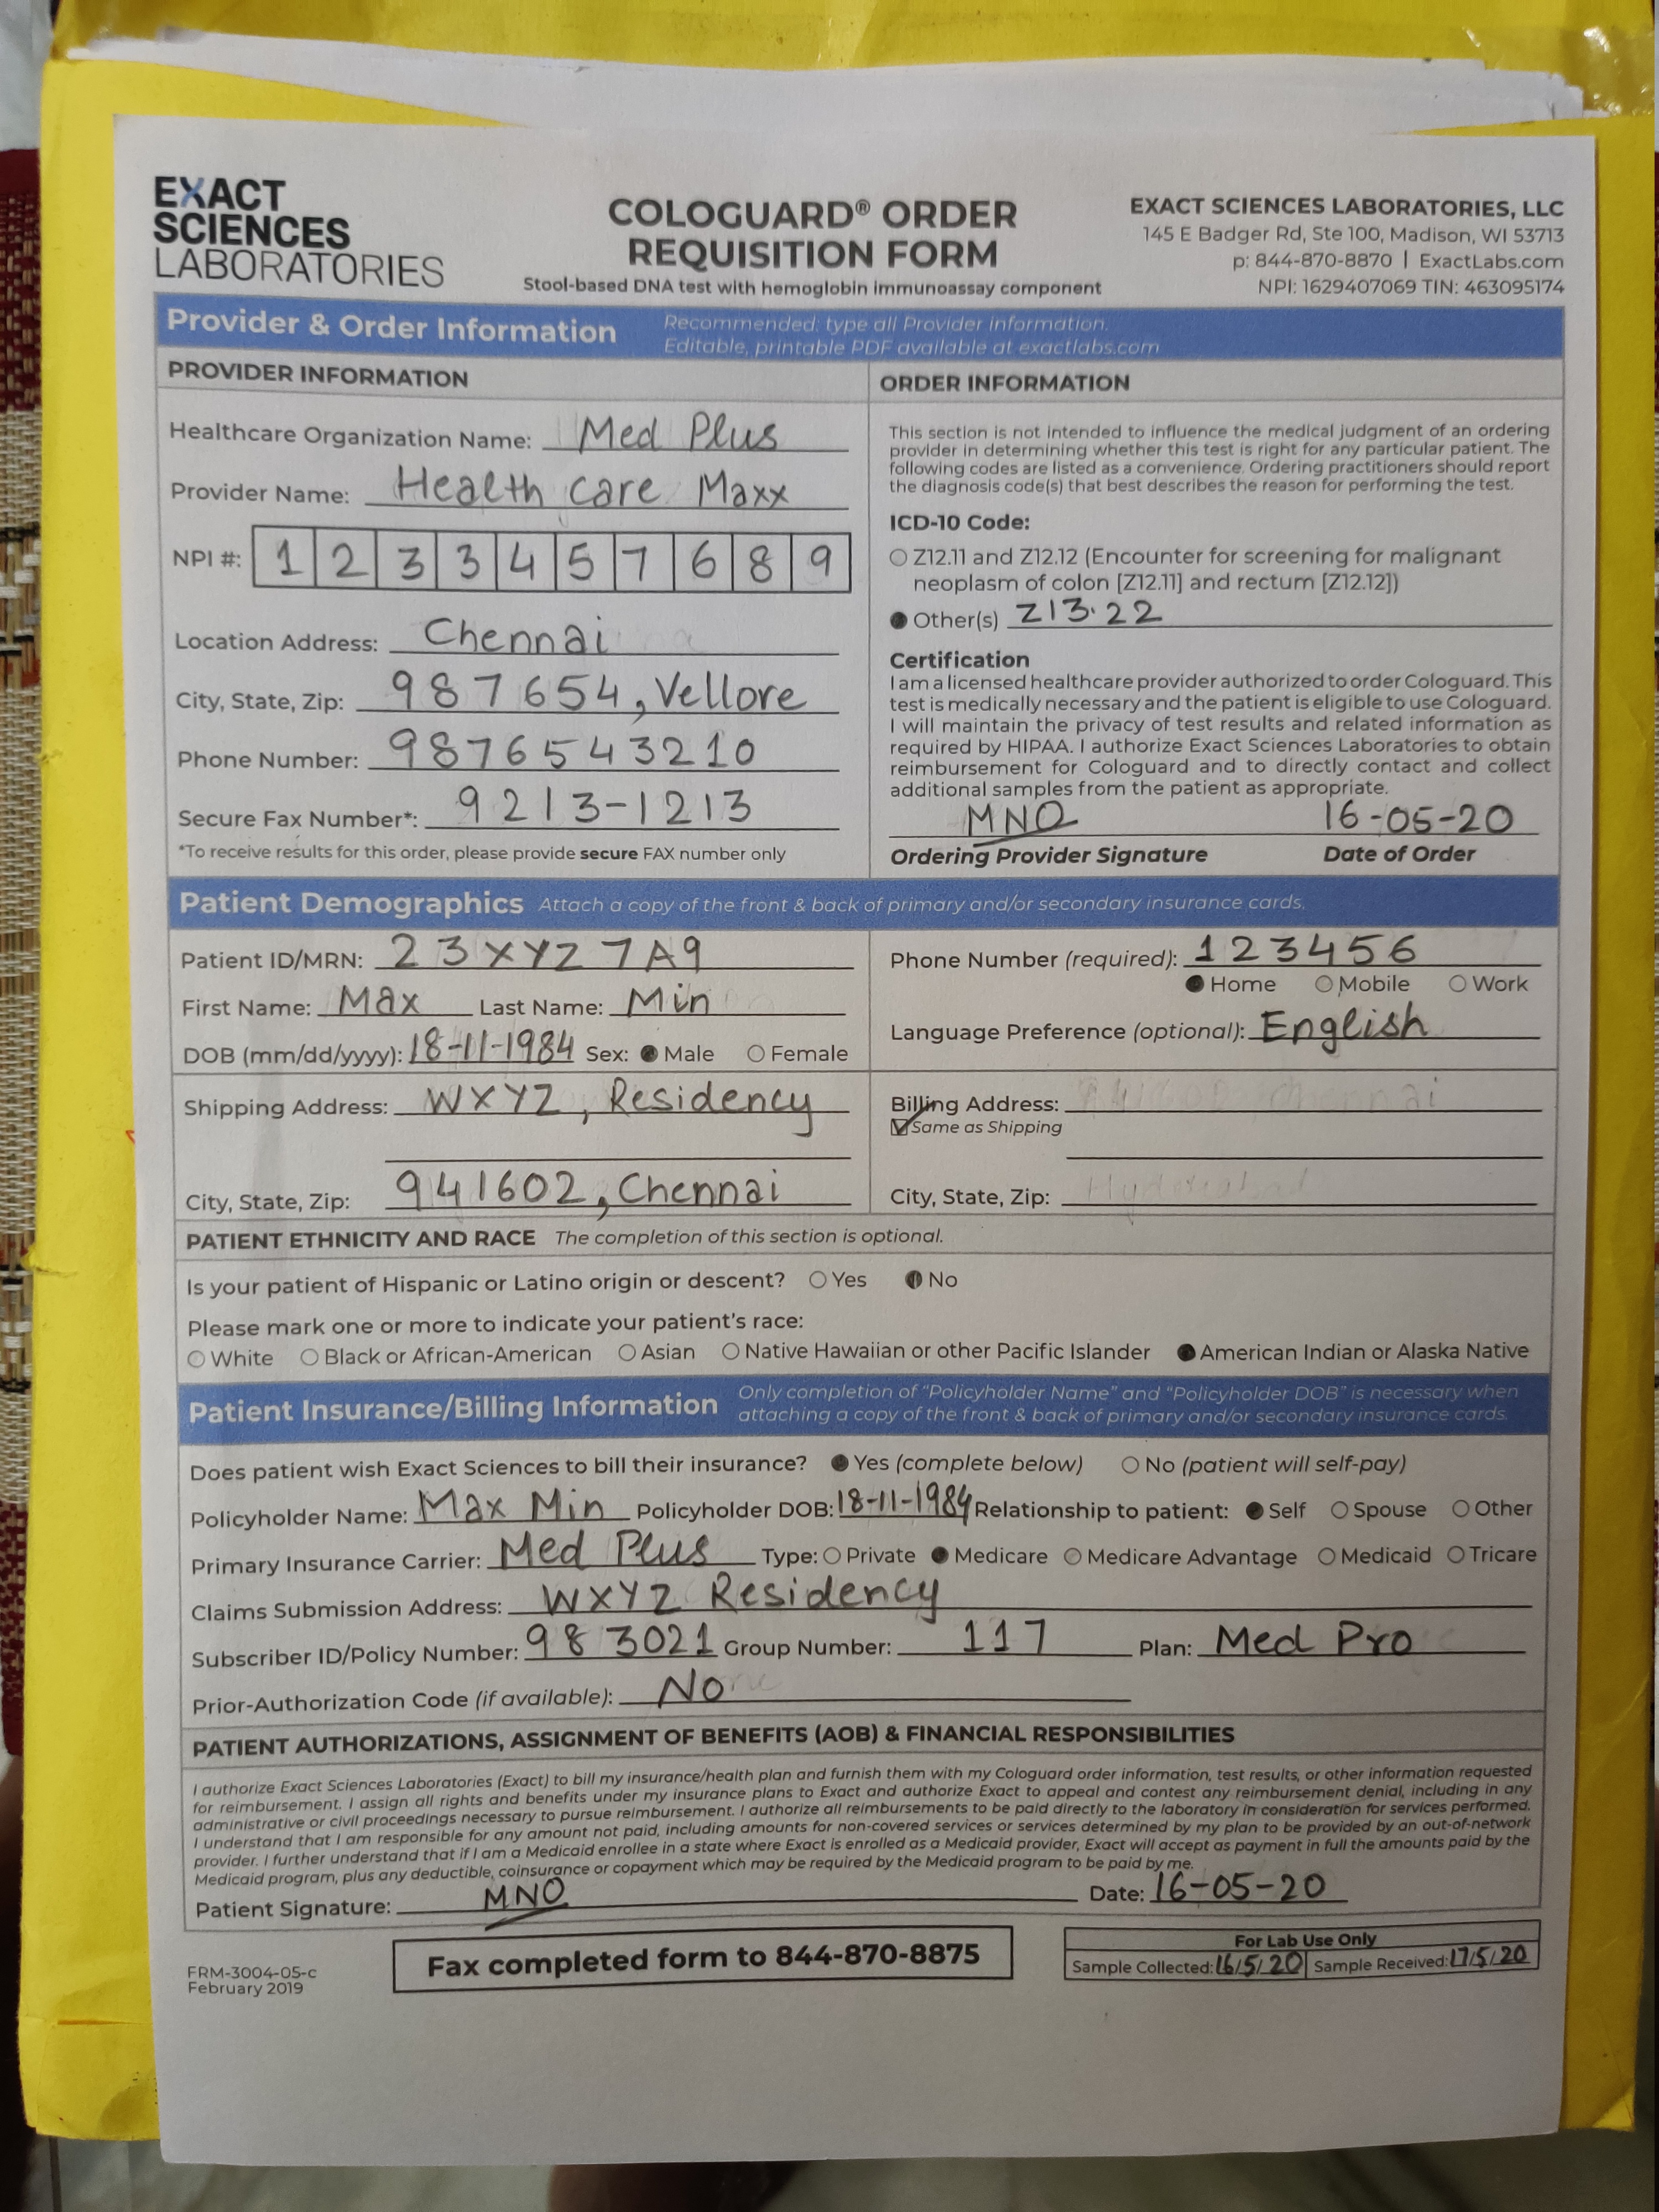 EXACT
SCIENCES
LABORATORIES
COLOGUARD® ORDER
REQUISITION FORM
Stool-based DNA test with hemoglobin immunoassay component
EXACT SCIENCES LABORATORIES, LLC
145 E Badger Rd, Ste 100, Madison, WI 53713
p: 844-870-8870 | ExactLabs.com
NPI: 1629407069 TIN: 463095174
Provider & Order Information
Recommended: type all Provider information.
Editable, printable PDF available at exactlabs.com
PROVIDER INFORMATION
Healthcare Organization Name: Med Plus
Provider Name: Health care Maxx
NPI #: 1 2 3 3 4 5 7 6 8 9
Location Address: Chennai
City, State, Zip: 987654, Vellore
Phone Number: 9876543210
Secure Fax Number*: 9213-1213
*To receive results for this order, please provide secure FAX number only
ORDER INFORMATION
This section is not intended to influence the medical judgment of an ordering
provider in determining whether this test is right for any particular patient. The
following codes are listed as a convenience. Ordering practitioners should report
the diagnosis code(s) that best describes the reason for performing the test.
ICD-10 Code:
Z12.11 and Z12.12 (Encounter for screening for malignant
neoplasm of colon [Z12.11] and rectum [Z12.12])
Other(s) Z13.22
Certification
I am a licensed healthcare provider authorized to order Cologuard. This
test is medically necessary and the patient is eligible to use Cologuard.
I will maintain the privacy of test results and related information as
required by HIPAA. I authorize Exact Sciences Laboratories to obtain
reimbursement for Cologuard and to directly contact and collect
additional samples from the patient as appropriate.
MNO 16-05-20
Ordering Provider Signature Date of Order
Patient Demographics Attach a copy of the front & back of primary and/or secondary insurance cards.
Patient ID/MRN: 23XYZ7A9
First Name: Max Last Name: Min
DOB (mm/dd/yyyy): 18-11-1984 Sex: Male Female
Phone Number (required): 123456
Home Mobile Work
Language Preference (optional): English
Shipping Address: WXYZ, Residency
City, State, Zip: 941602, Chennai
Billing Address:
Same as Shipping
City, State, Zip:
PATIENT ETHNICITY AND RACE The completion of this section is optional.
Is your patient of Hispanic or Latino origin or descent? Yes No
Please mark one or more to indicate your patient's race:
White Black or African-American Asian Native Hawaiian or other Pacific Islander American Indian or Alaska Native
Patient Insurance/Billing Information
Only completion of "Policyholder Name" and "Policyholder DOB" is necessary when
attaching a copy of the front & back of primary and/or secondary insurance cards.
Does patient wish Exact Sciences to bill their insurance? Yes (complete below) No (patient will self-pay)
Policyholder Name: Max Min Policyholder DOB: 18-11-1984 Relationship to patient: Self Spouse Other
Primary Insurance Carrier: Med Plus Type: Private Medicare Medicare Advantage Medicaid Tricare
Claims Submission Address: WXYZ Residency
Subscriber ID/Policy Number: 983021 Group Number: 117 Plan: Med Pro
Prior-Authorization Code (if available): No
PATIENT AUTHORIZATIONS, ASSIGNMENT OF BENEFITS (AOB) & FINANCIAL RESPONSIBILITIES
I authorize Exact Sciences Laboratories (Exact) to bill my insurance/health plan and furnish them with my Cologuard order information, test results, or other information requested
for reimbursement. I assign all rights and benefits under my insurance plans to Exact and authorize Exact to appeal and contest any reimbursement denial, including in any
administrative or civil proceedings necessary to pursue reimbursement. I authorize all reimbursements to be paid directly to the laboratory in consideration for services performed.
I understand that I am responsible for any amount not paid, including amounts for non-covered services or services determined by my plan to be provided by an out-of-network
provider. I further understand that if I am a Medicaid enrollee in a state where Exact is enrolled as a Medicaid provider, Exact will accept as payment in full the amounts paid by the
Medicaid program, plus any deductible, coinsurance or copayment which may be required by the Medicaid program to be paid by me.
Patient Signature: MNO Date: 16-05-20
FRM-3004-05-c
February 2019
Fax completed form to 844-870-8875
For Lab Use Only
Sample Collected: 16/5/20 Sample Received: 17/5/20